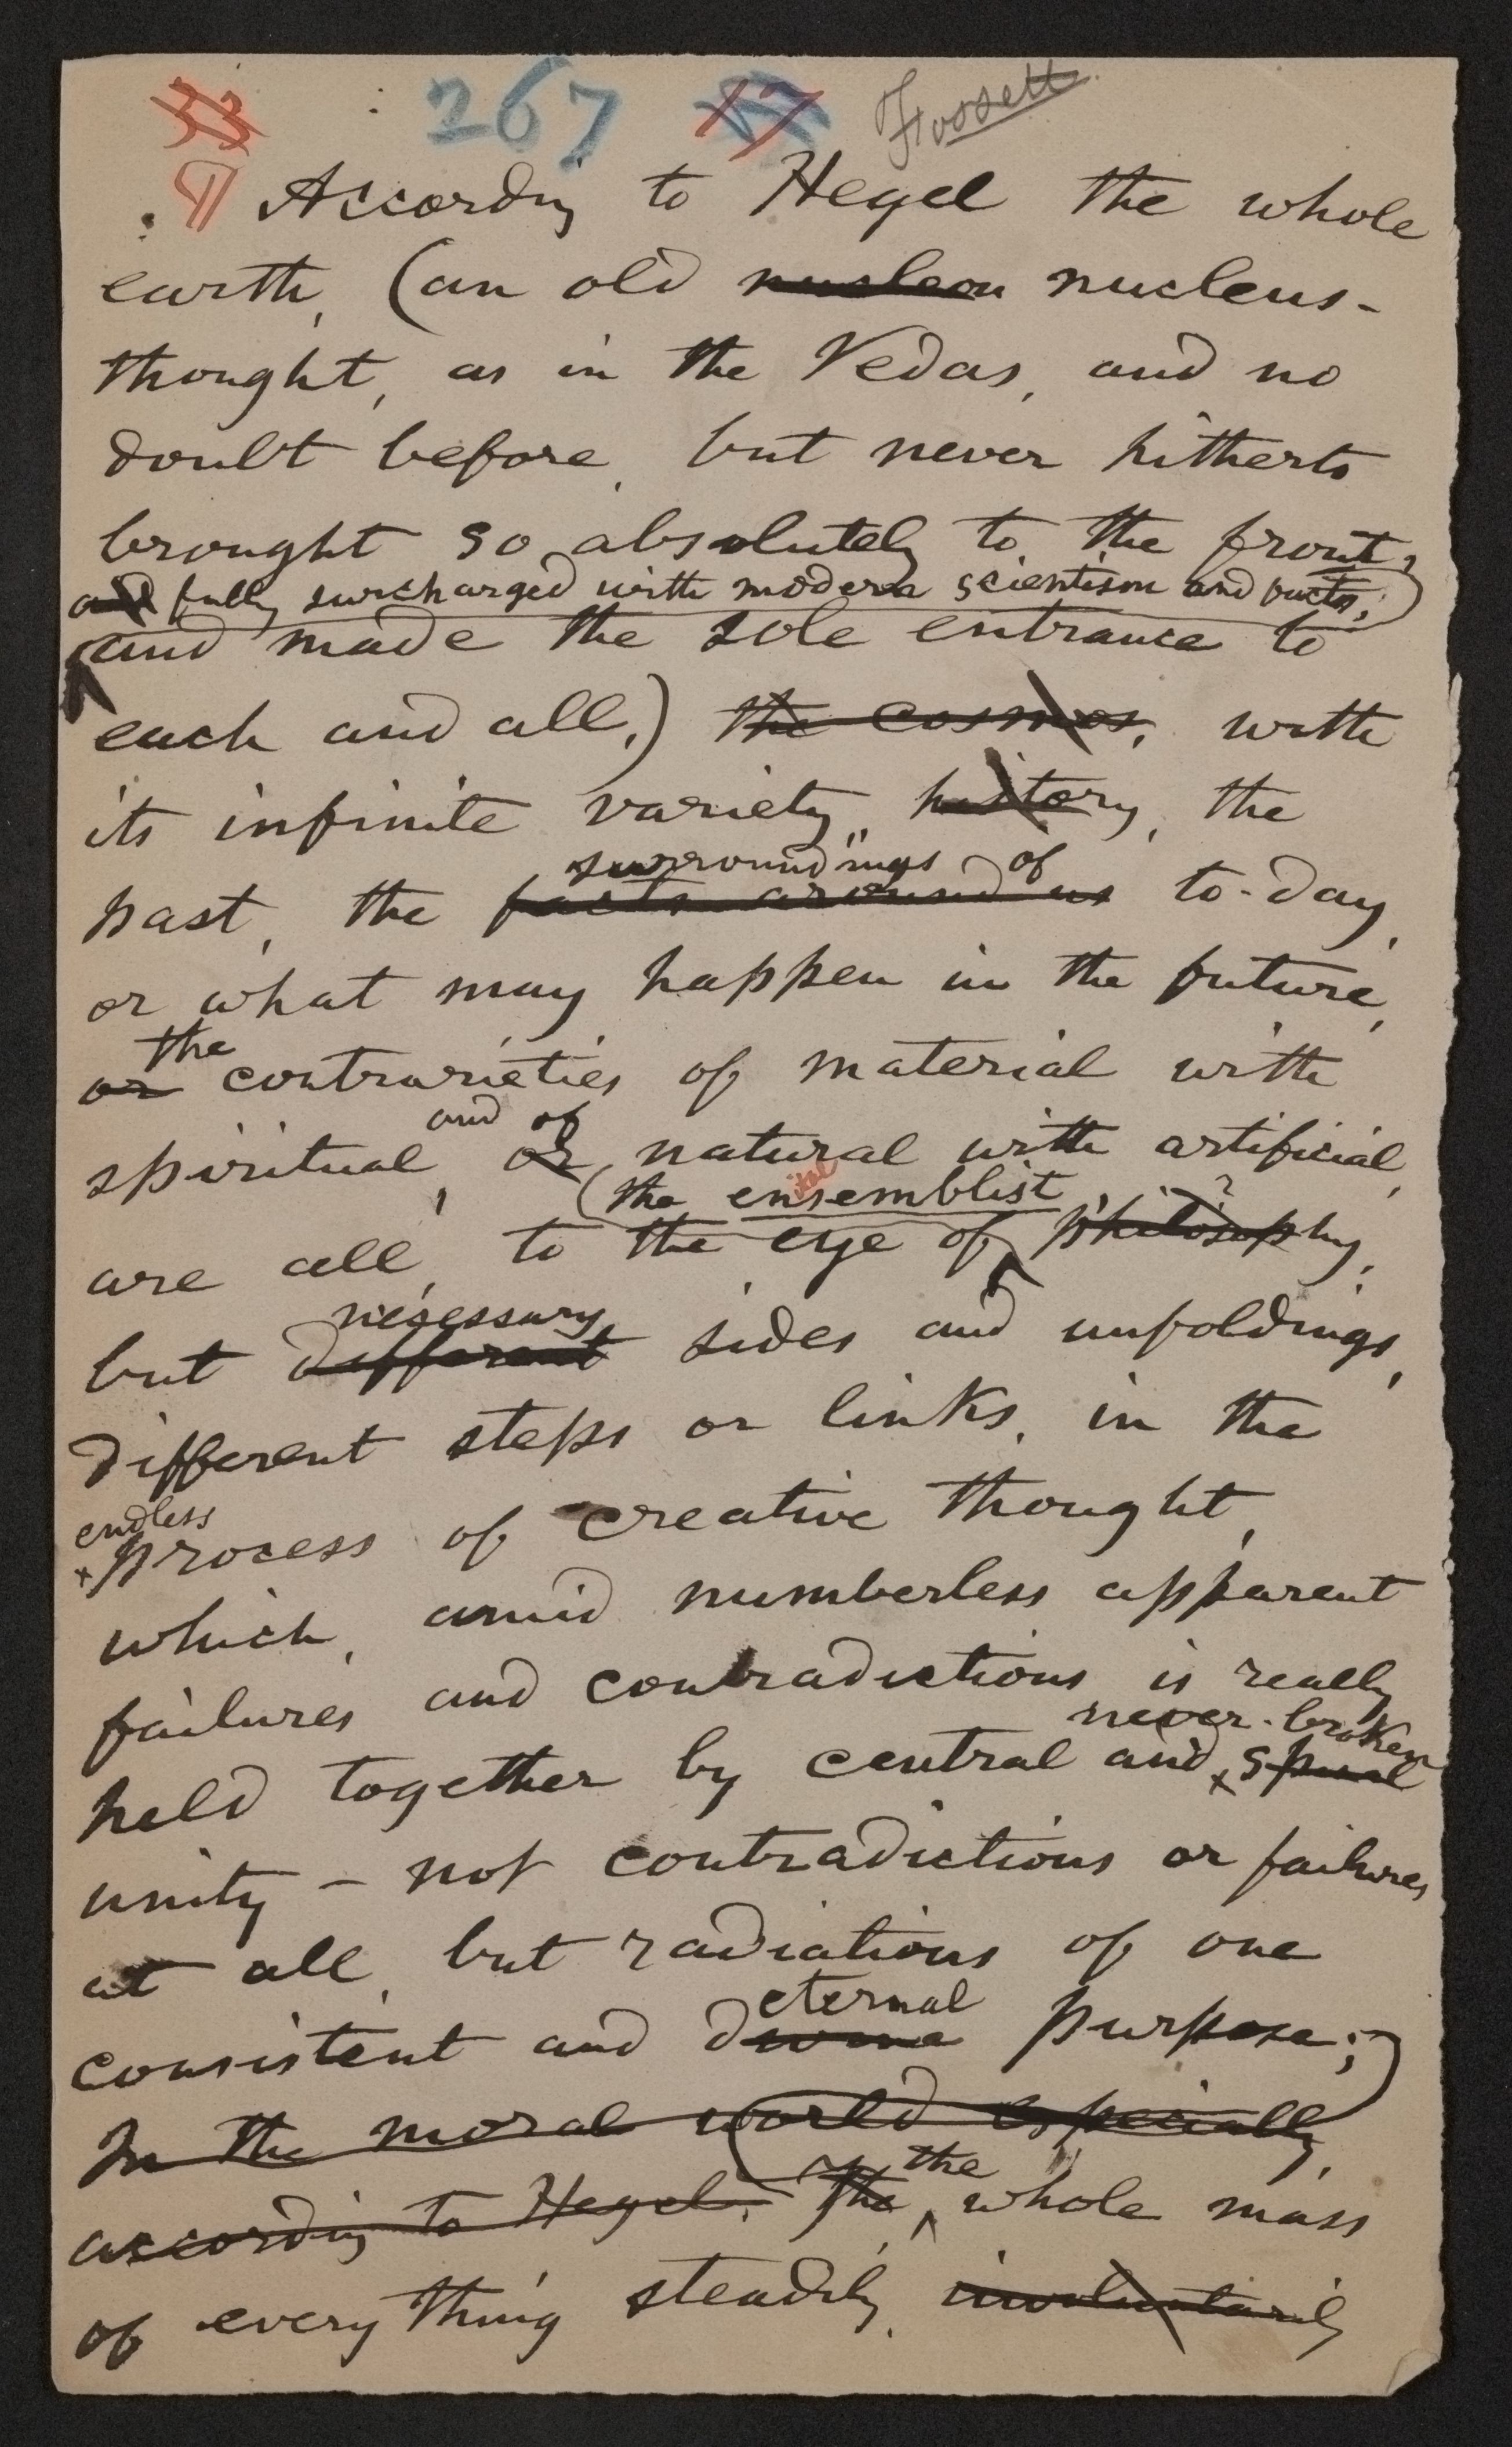 33 267 17 Fossett
¶ According to Hegel the whole
earth, (an old nucleon nucleus-
thought, as in the Vedas, and no
doubt before, but never hitherto
brought so absolutely to the front,
and fully surcharged with modern scientism and facts,
and made the sole entrance to
each and all,) the cosmos, with
its infinite variety, history, the
surroundings of
past, the facts around us to-day,
or what may happen in the future,
the
or contrarieties of material with
and of
spiritual, or natural with artificial,
(the ensemblist ital
are all, to the eye of philosophy, ?
necessary
but different sides and unfoldings,
different steps or links, in the
endless
process of creative thought,
which, amid numberless apparent
failures and contradictions is really
never-broken
held together by central and
unity – not contradictions or failures
at all, but radiations of one
eternal
consistent and divine purpose;
In the moral world especially,
the
according to Hegel. The whole mass
of every thing steadily, involuntarily